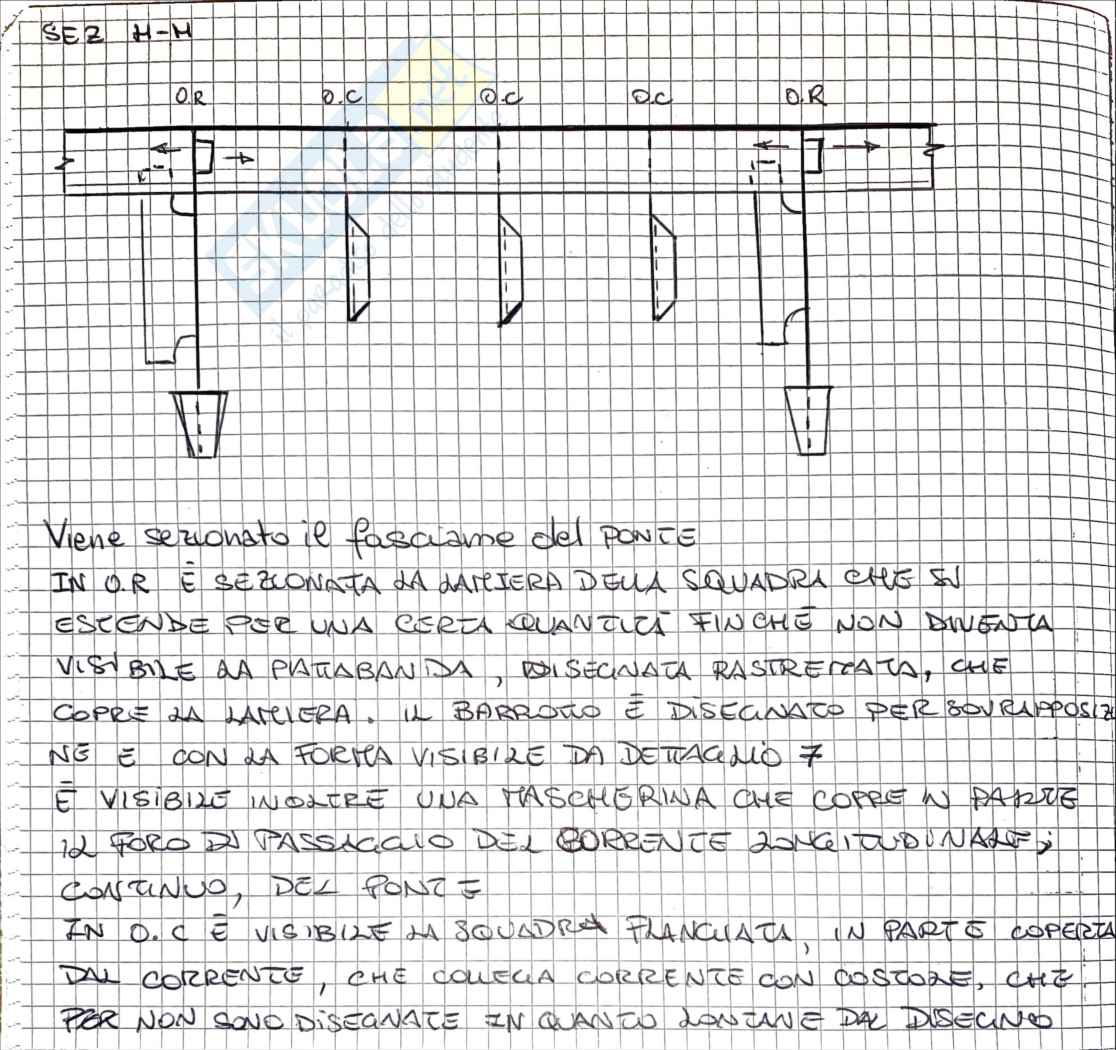 SEZ H-H
O.R O.C O.C O.C O.R
SKUOLA.net
il paradiso dello studente
Viene sezionato il fasciame del PONTE
IN O.R È SEZIONATA LA LAMIERA DELLA SQUADRA CHE SI
ESTENDE PER UNA CERTA QUANTITÀ FINCHÈ NON DIVENTA
VISIBILE LA PIATTABANDA, DISEGNATA RASTREMATA, CHE
COPRE LA LAMIERA. IL BARROTTO È DISEGNATO PER SOVRAPPOSIZIO
NE E CON LA FORMA VISIBILE DA DETTAGLIO 7
È VISIBILE INOLTRE UNA MASCHERINA CHE COPRE IN PARTE
IL FORO DI PASSAGGIO DEL CORRENTE LONGITUDINALE;
CONTINUO, DEL PONTE
IN O.C È VISIBILE LA SQUADRA FLANGIATA, IN PARTE COPERTA
DAL CORRENTE, CHE COLLEGA CORRENTE CON COSTOLE, CHE
PER NON SONO DISEGNATE IN QUANTO LONTANE DAL DISEGNO